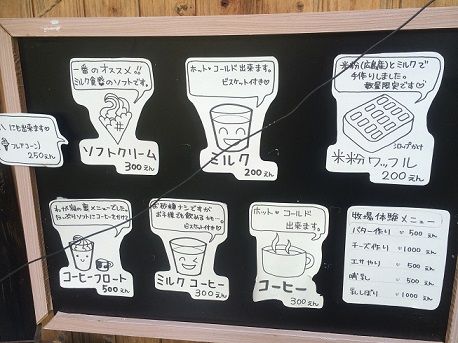 一番のオススメ!!
ミルク食番のソフトです。
ソフトクリーム
300えん
にも出来ます♡
250えん
ホット・コールド出来ます。
ビスケット付き♡
ミルク
200えん
米粉(広島産)とミルクで
手作りしました。
数量限定です♡
シロップかけ
米粉ワッフル
200えん
コーヒーフロート
500えん
お砂糖ナシですが
お子様でも飲めるかもー。
ビスケット付き♡
ミルクコーヒー
300えん
ホット・コールド
出来ます。
コーヒー
300えん
牧場体験メニュー
バター作り ♡500えん
チーズ作り ♡1000えん
エサやり ♡500えん
哺乳 ♡500えん
乳しぼり ♡1000えん